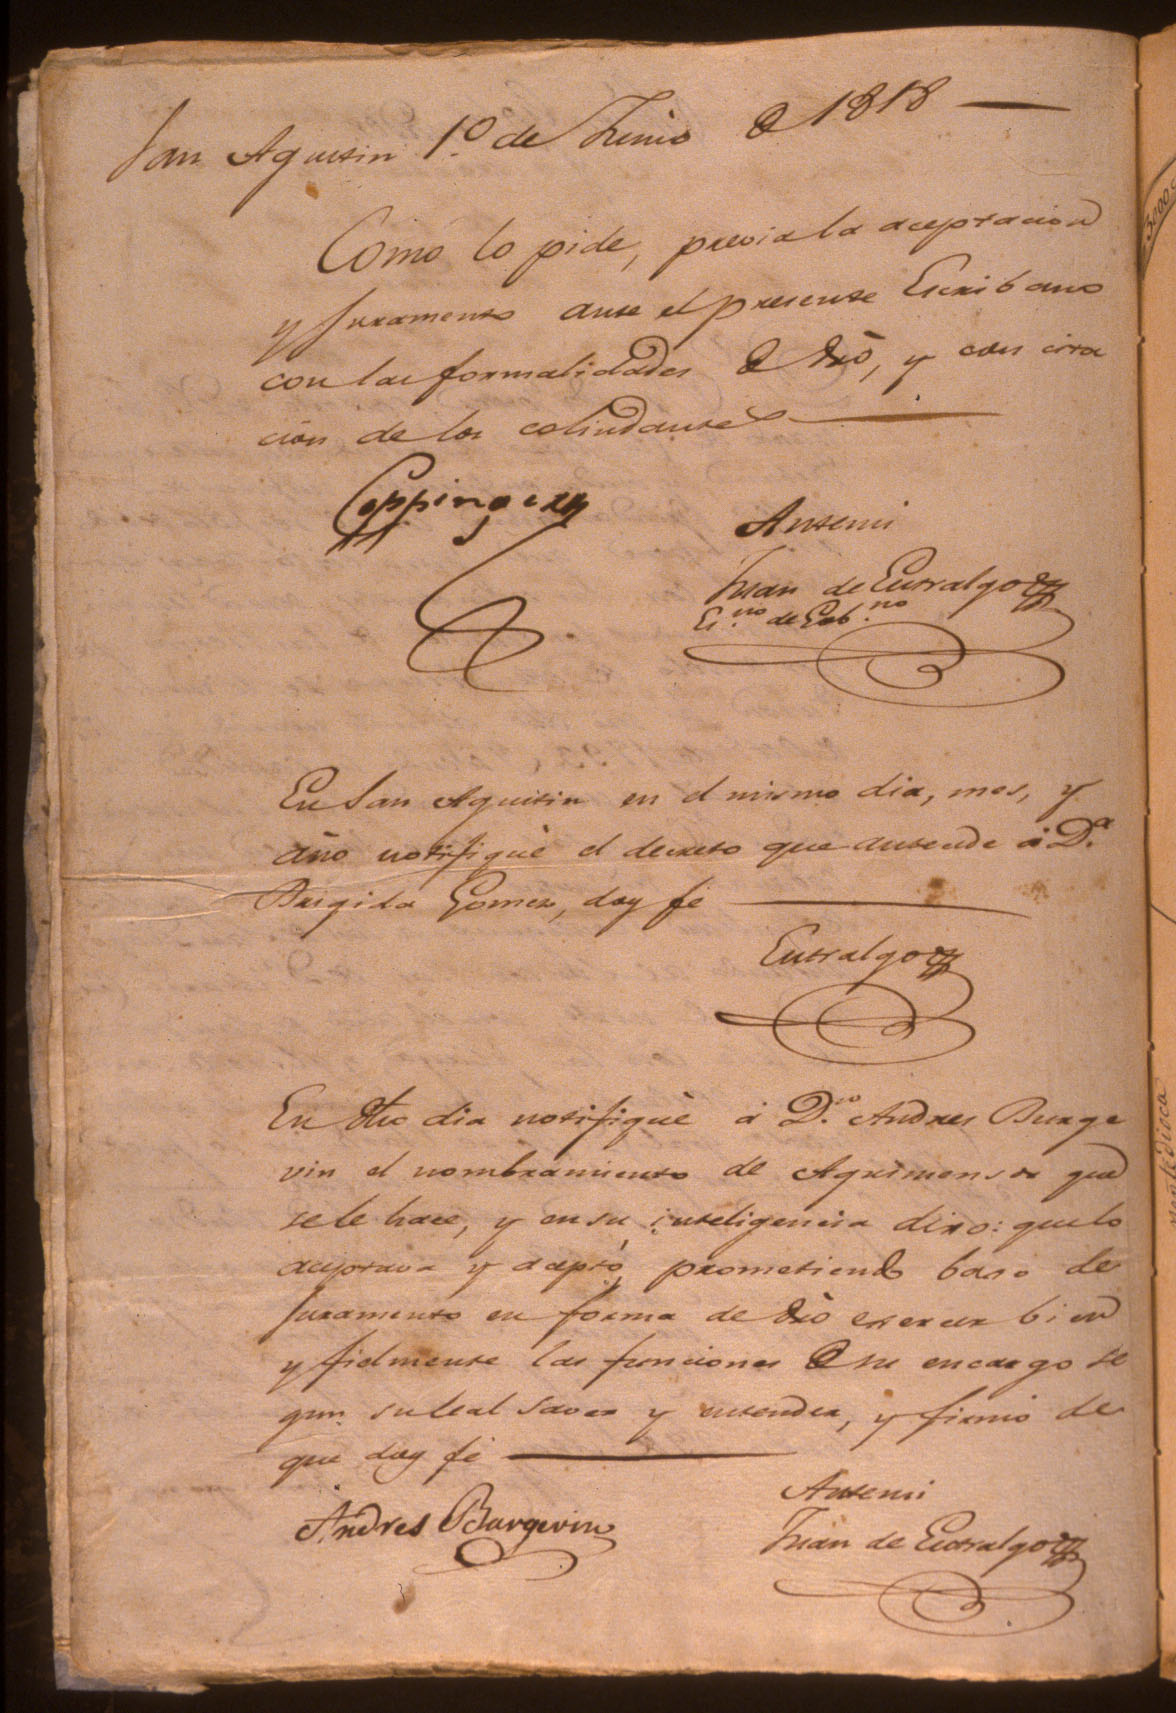 San Agustin 1.º de Junio de 1818
Como lo pide, previa la aceptacion
y juramento ante el presente Escribano
con las formalidades de dro, y con cita
cion de los colindantes
Coppinger
Antemi
Juan de Entralgo
Es.no de Gob.no
En San Agustin en el mismo dia, mes, y
año notifiqué el decreto que antecede á D.a
Brigida Gomez, doy fe
Entralgo
En dho dia notifiqué á D.n Andres Burge
vin el nombramiento de Agrimensor que
se le hace, y en su inteligencia dixo: que lo
aceptava y aceptó, prometiendo baxo de
juramento en forma de dro exercer bien
y fielmente las funciones de su encargo se
gun su leal saver y entender, y firmó de
que doy fé
Andres Burgevin
Antemi
Juan de Entralgo